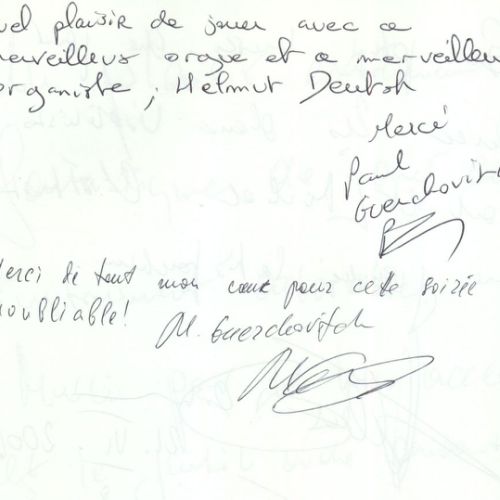 uel plaisir de jouer avec ce
merveilleux orgue et ce merveilleu
organiste, Helmut Deutsh
Mercé
Paul
Guerchovit
Merci de tout mon cœur pour cette soirée
noubliable! M. Guerchovitch